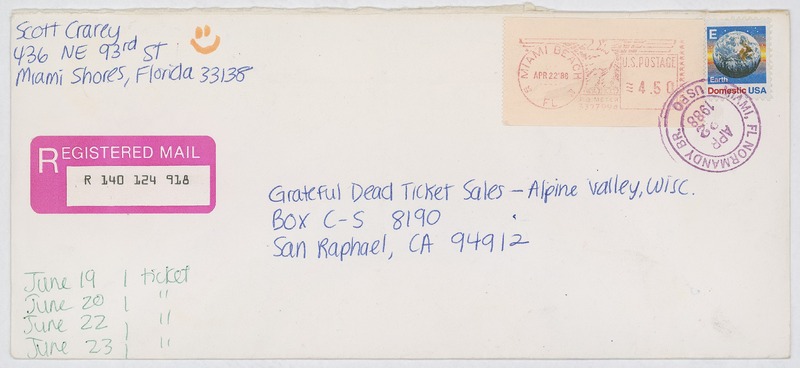 Scott Crarey
436 NE 93rd St
Miami Shores, Florida 33138
MIAMI BEACH
APR 22'88
FL
U.S. POSTAGE
4.50
E
Earth
Domestic USA
MIAMI, FL NORMANDY BR.
APR 22
1988
USPO
REGISTERED MAIL
R 140 124 918
Grateful Dead Ticket Sales – Alpine Valley, Wisc.
Box C-S 8190
San Raphael, CA 94912
June 19 1 ticket
June 20 1 "
June 22 1 "
June 23 1 "